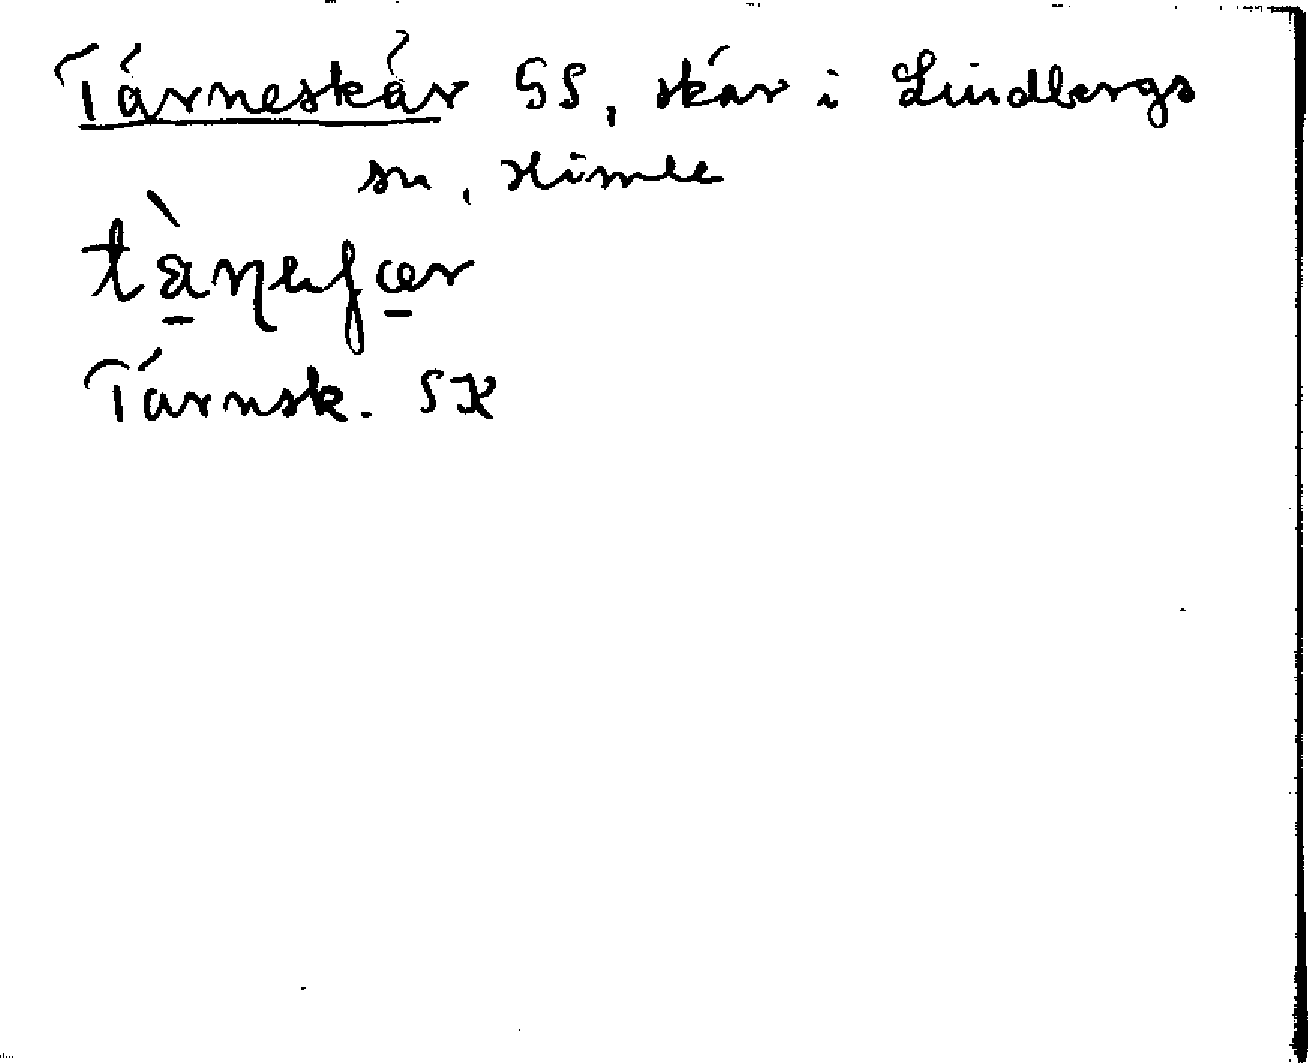 Tärneskär GS, skär i Lindbergs
sn, Himle
tä̀ṇeʃær
Tärnsk. SK